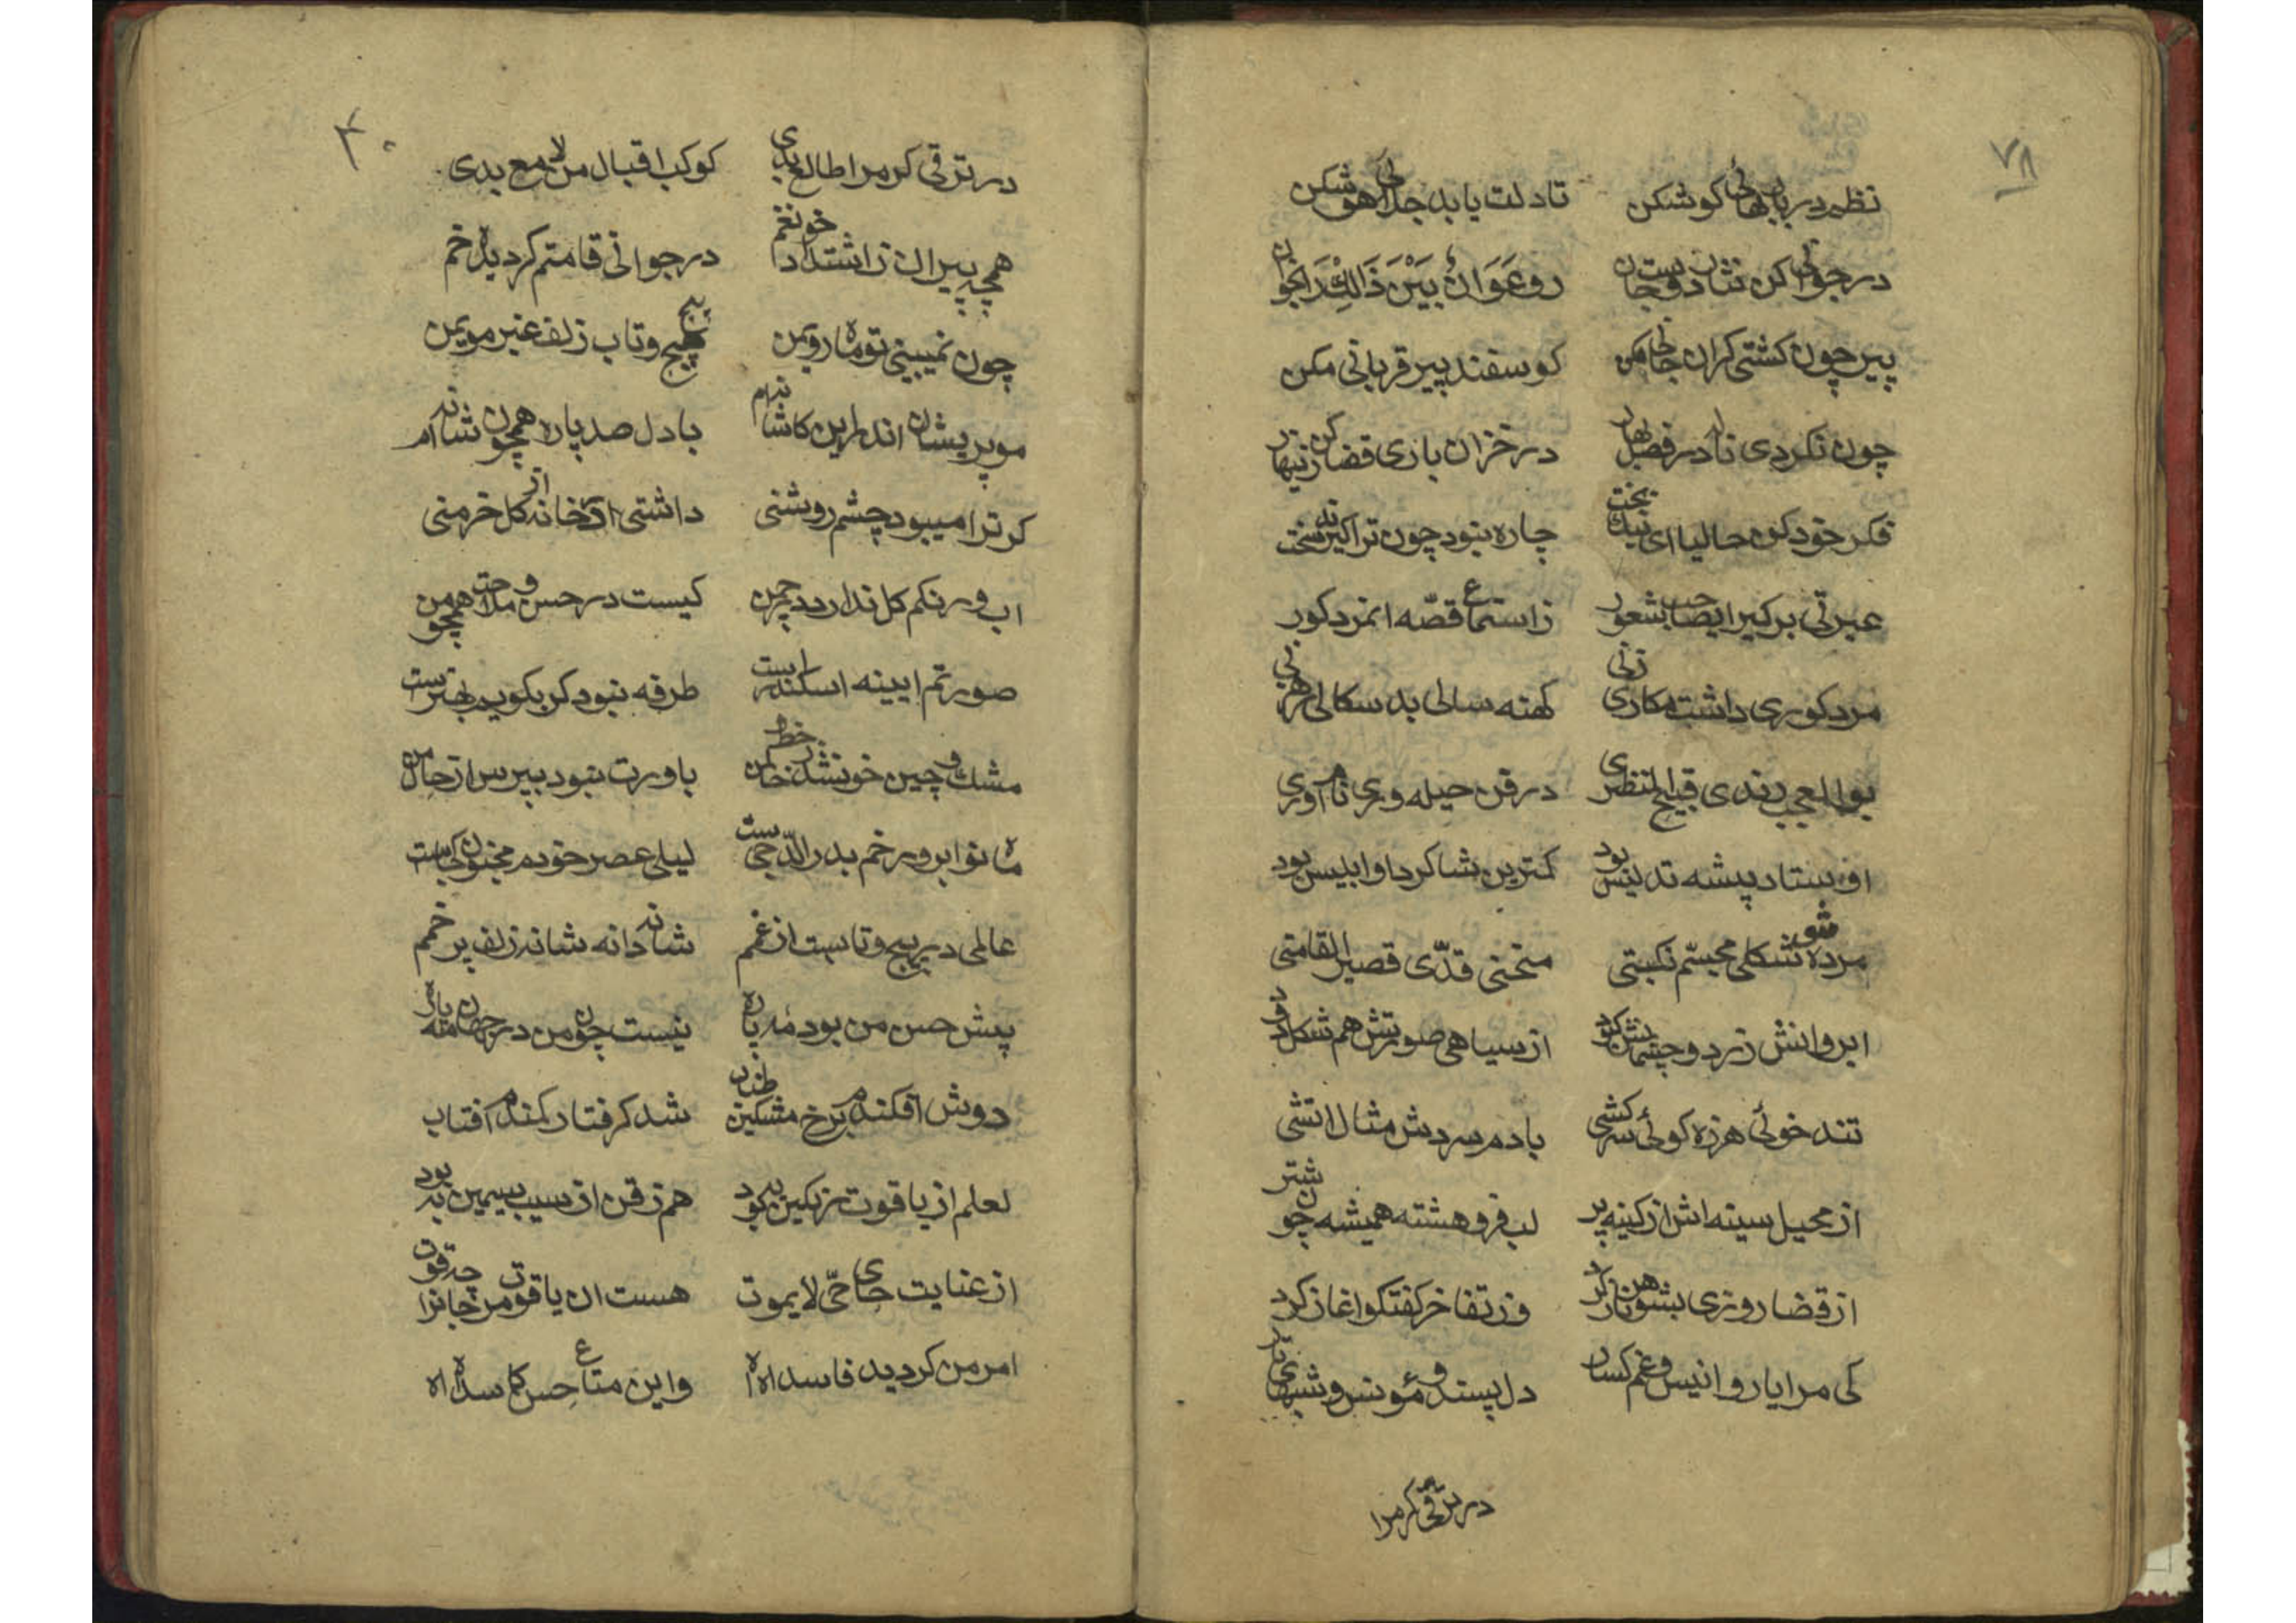 ۷۸
نظم در باب بهائی کو شکن تا دلت یابد جلائی اهو شکن
در جوانی کن نثار دوست جان رو عَوَانٌ بَیْنَ ذَالِکْ رَا بخوان
پیر چون کشتی کران جانی مکن کوسفند پیر قربانی مکن
چون نکردی ناله در فصل بهار در خزان باری قضا کن زنیهار
فکر خود کن حالیا ای نیك بخت چاره نبود چون ترا کیرند سخت
عبرتی برکیر ایصاحب شعور ز استماع قصّه انمرد کور
مرد کوری داشت مکاری زنی کهنه سالی بد سکالی
بوالعجب رندی قبیح المنظری در فن حیله وری نام آوری
اوستاد پیشه تدلیس بود کمترین شاکرد او ابلیس بود
مرده شو شکلی مجسّم نکبتی منحنی قدّی قصیر القامتی
ابروانش زرد و چشمانش کبود از سیاهی صورتش همشکل دود
تند خوئی هرزه کوئی سرکشی با دم سردش مثال اتشی
از محیل سینه اش از کینه پر لب فرو هشته همیشه چون شتر
از قضا روزی بشوهر ناز کرد وز تفاخر کفتکو اغاز کرد
کی مرا یار و انیس و غم کسار دل پسند و مؤنس و شبهای تار
در ترقی کر مرا
۴۰
در ترقی کر مرا طالع بدی کوکب اقبال من لامع بدی
همچه پیران ز اشتداد درجوانی قامتم کردیده خم
چون نمیبینی تو ماه روی من پیچ و تاب زلف عنبر موی من
مو پریشان اندر این کاشانه ام با دل صد پاره همچون شانه ام
کر ترا میبود چشم روشنی داشتی در خانه از کل خرمنی
اب و رنکم کل ندارد در چمن کیست در حسن و ملاحت همچو من
صورتم ایینه اسکندر است طرفه نبود کر بکویم بهتر است
مشك و چین خونشد ز خط خال من باورت نبود بپرس از حال من
ماه نو ابرو رخم بدر الدّجی ست لیلی عصر خودم مجنون کجاست
عالمی در پیچ و تابست از غمم شانه دانه شانه زلف پر خمم
پیش حسن من بود مه پاره نیست چون من در جهان مه پاره
دوش افکندم برخ مشکین طناب شد کرفتار کمندم افتاب
لعلم از یاقوت رنکین به بود هم زقن از سیب سیمین به بود
از عنایت های حیّ لا یموت هست ان یاقوت من جانرا چه قوت
امر من کردید فاسد اه اه واین متاع حسن کاسد اه اه